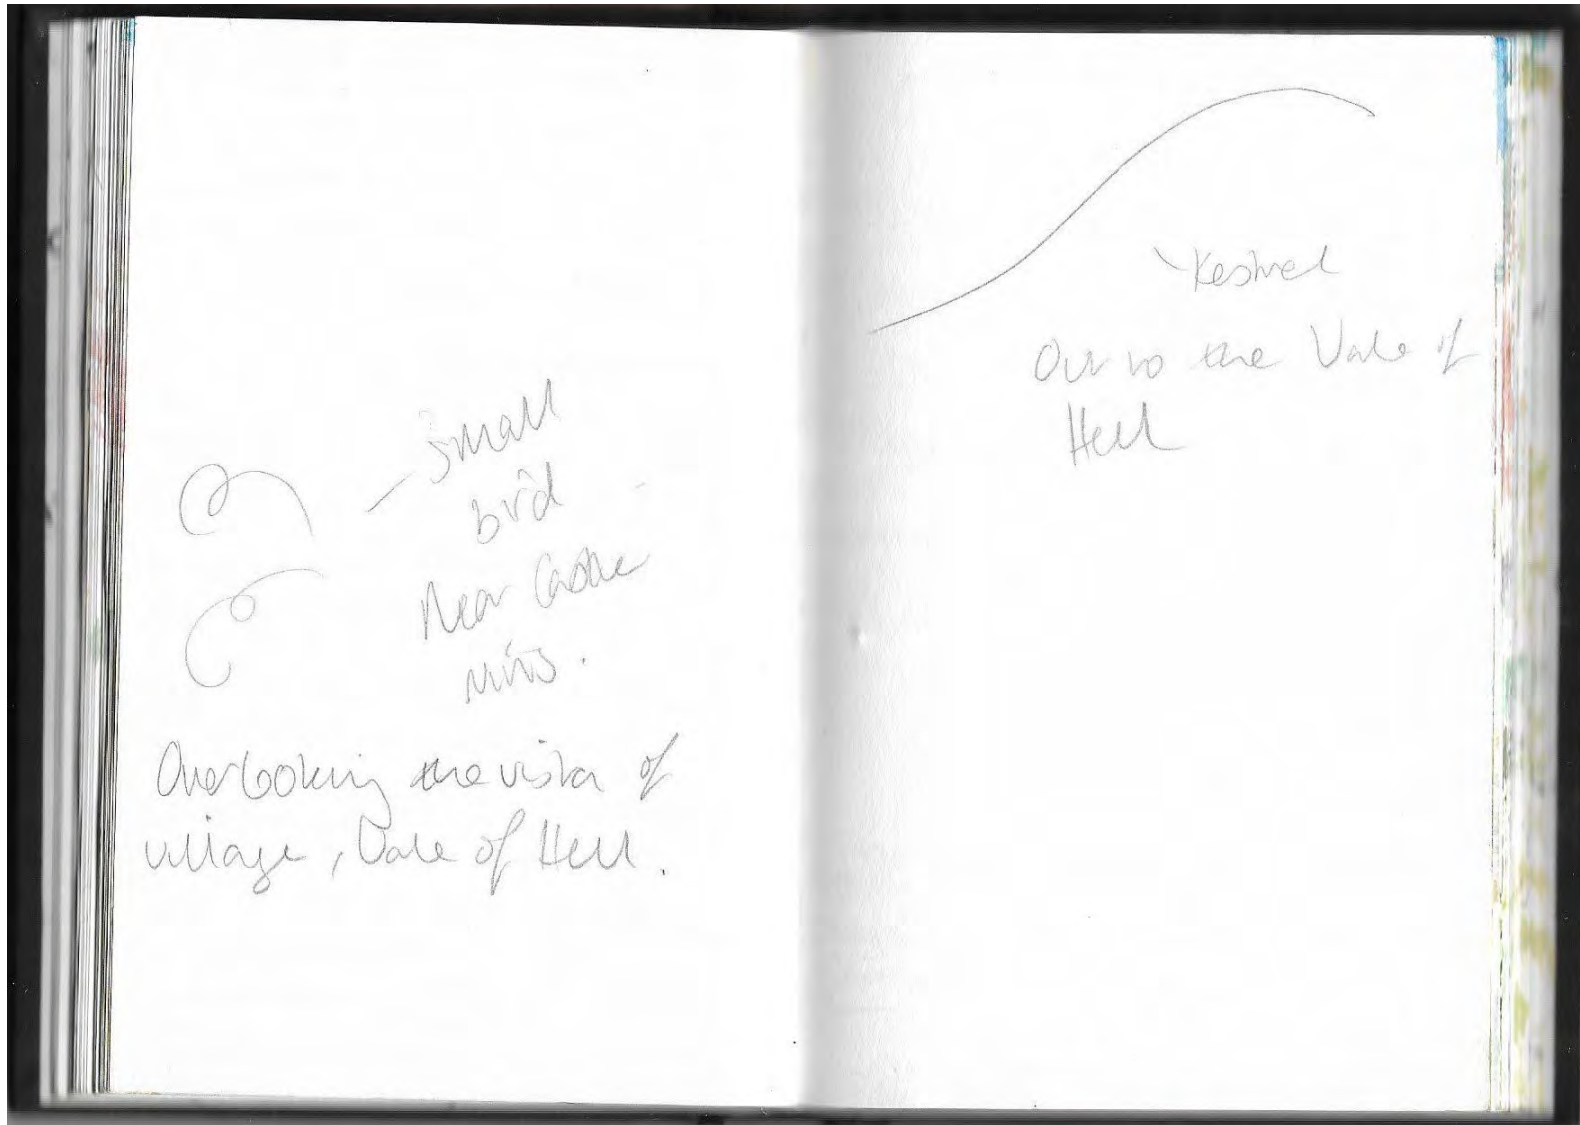 - Small
bird
Near Castle
ruins.
Overlooking the vista of
village, Vale of Hell.
Kestrel
Out to the Vale of
Hell